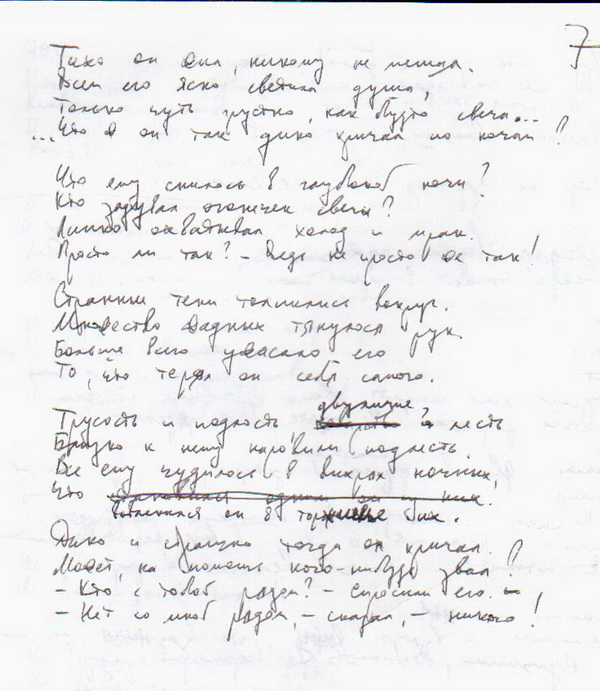 7
Тихо он жил, никому не мешал.
Всем его ясно светила душа,
Только чуть грустно, как будто свеча...
...Что ж он так дико кричал по ночам?
Что ему снилось в глубокой ночи?
Кто задувал огонечек свечи?
Липко охватывал холод и мрак.
Просто ли так? – Ведь не просто же так!
Странные тени толпились вокруг.
Множество жадных тянулось рук.
Больше всего ужасало его
То, что терял он себя самого.
двуличие
Трусость и подлость, и лесть
Близко к нему норовили подлезть.
Все ему чудилось в вихрях ночных,
Что становился одним он из них.
он в
Дико и страшно тогда он кричал.
Может, на помощь кого-нибудь звал?
– Кто с тобой рядом? – Спросили его.
– Нет со мной рядом, – сказал, – никого!